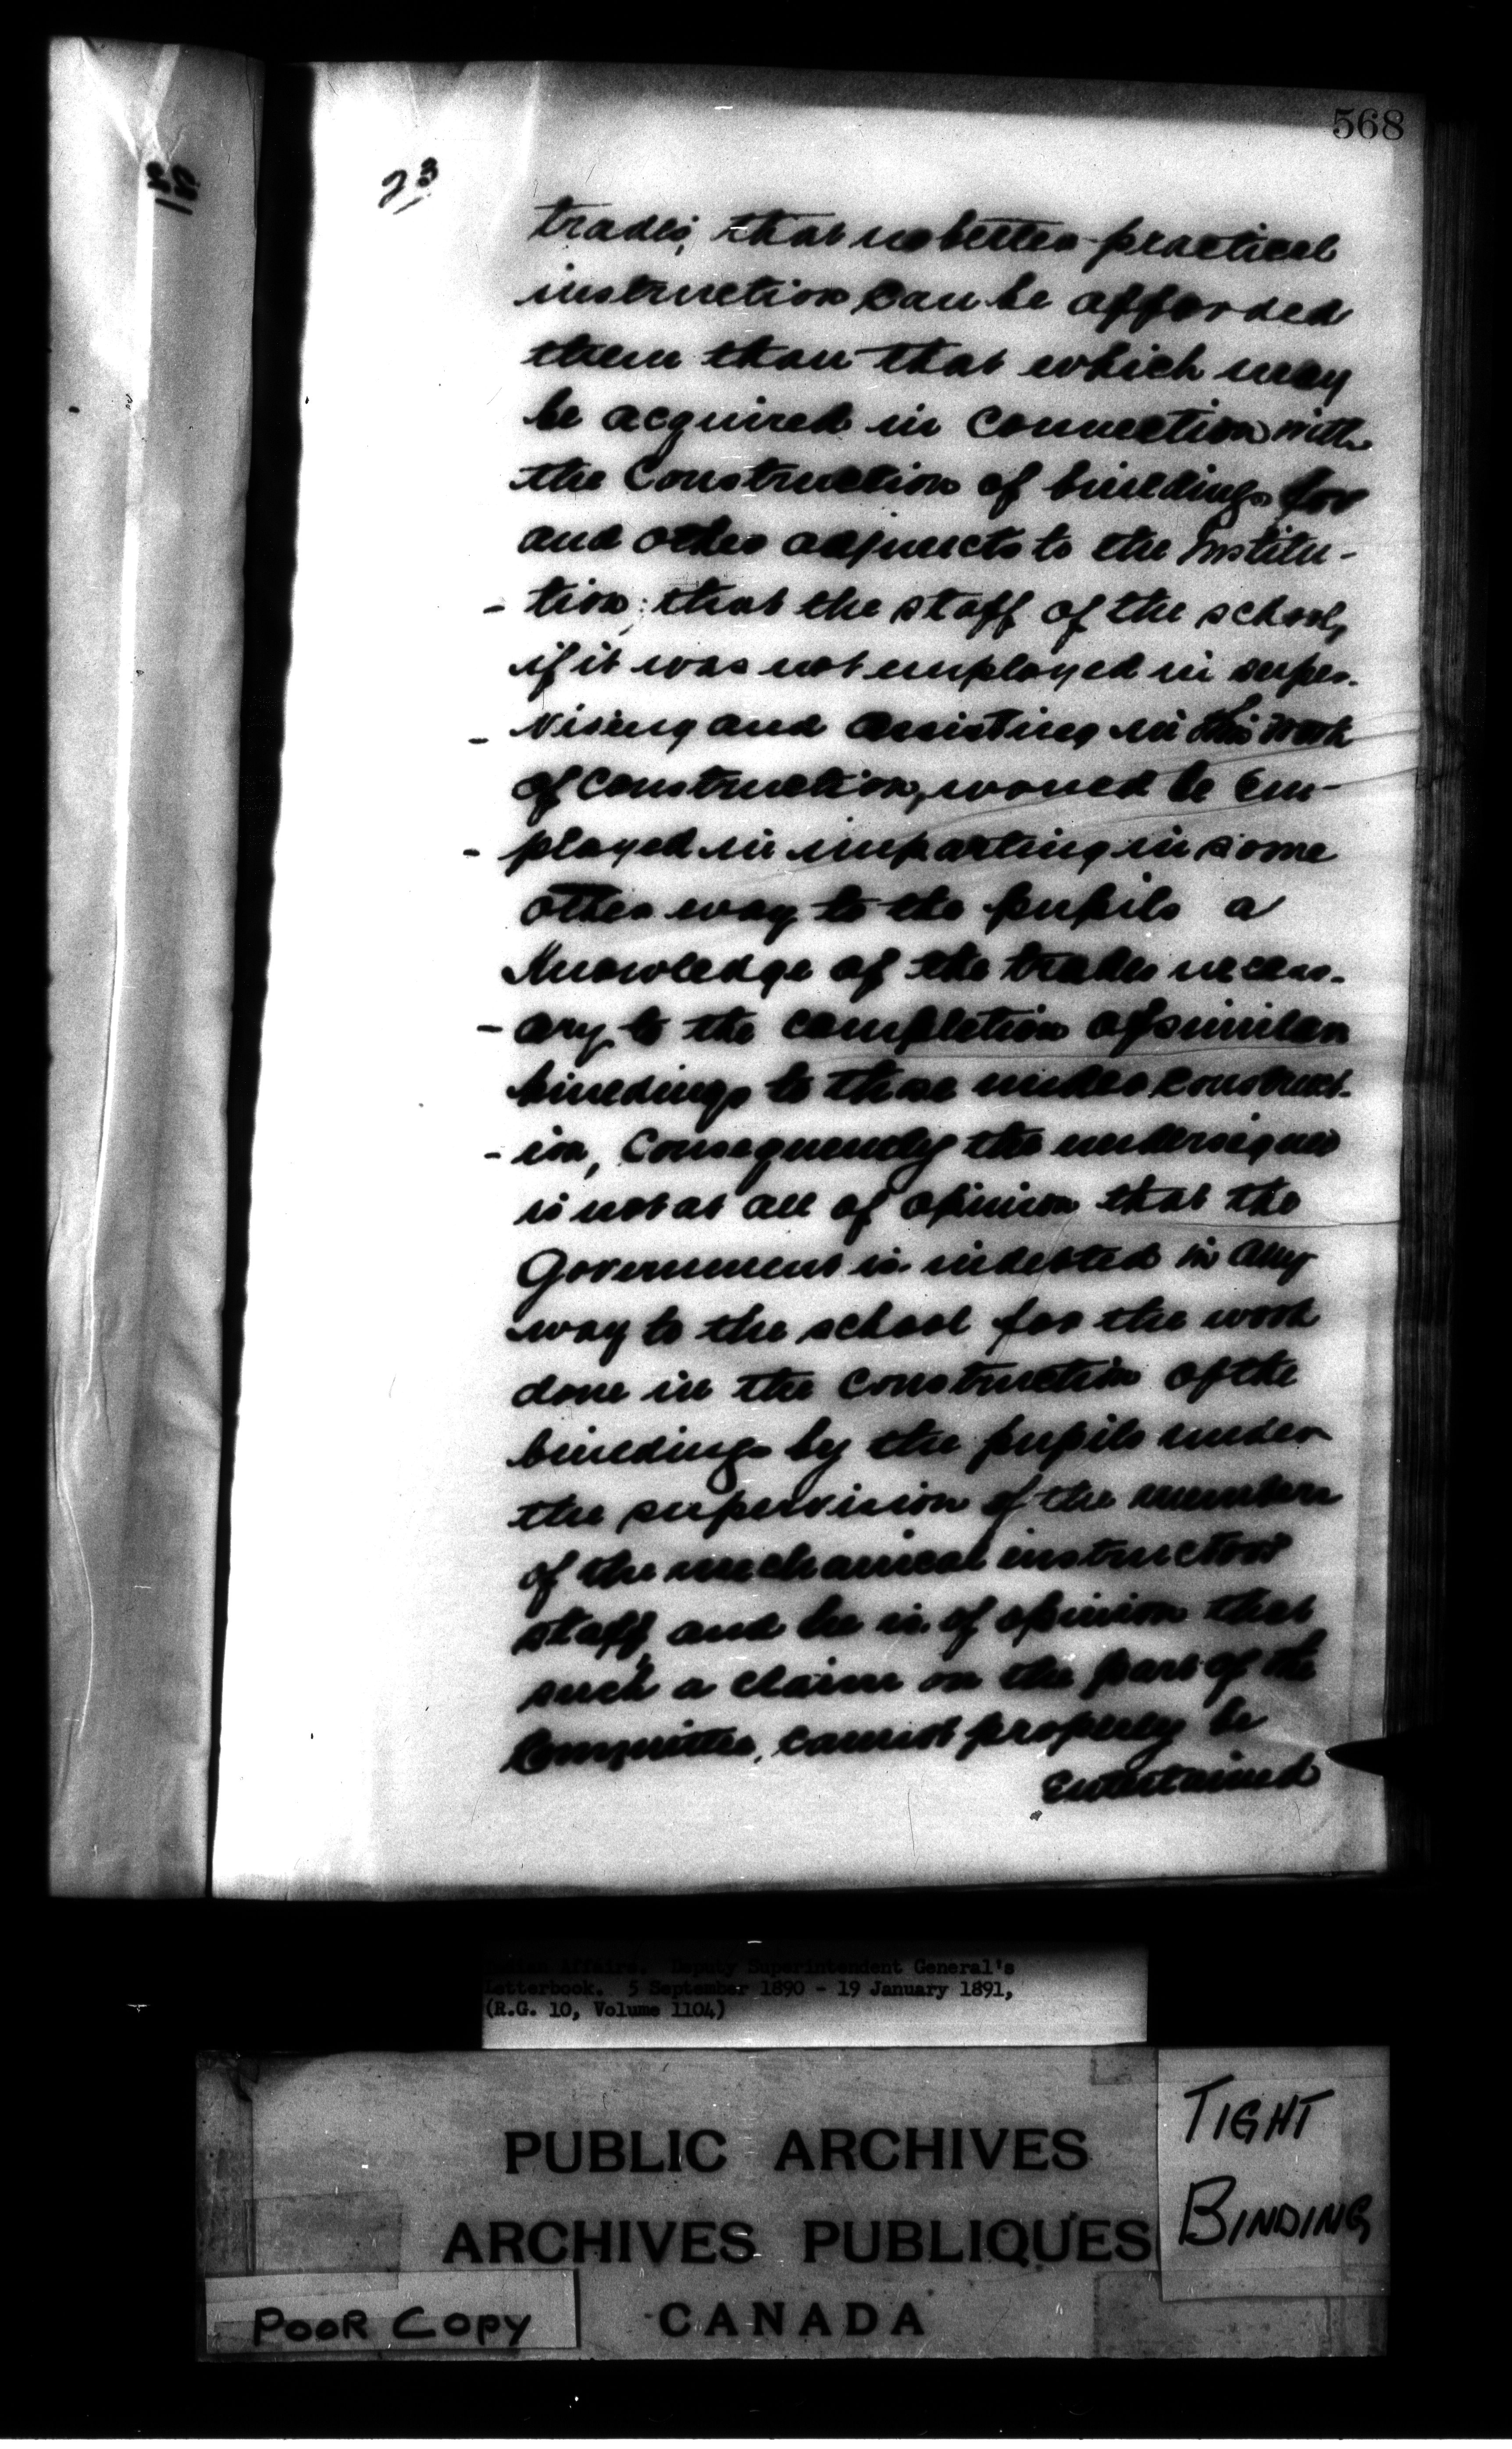 568
23
trades; that no better practical
instruction can be afforded
them than that which may
be acquired in connection with
the Construction of buildings for
and other adjuncts to the Institu-
- tion; that the staff of the school,
if it was not employed in super-
- vising and assisting in this work
of construction, would be em-
- ployed in imparting in some
other way to the pupils a
Knowledge of the trades necess-
- ary to the completion of similar
buildings to those under construct-
- ion, Consequently the undersigned
is not at all of opinion that the
Government is indebted in any
way to the school for the work
done in the construction of the
buildings by the pupils under
the supervision of the members
of the mechanical instructors
staff, and he is of opinion that
such a claim on the part of the
Committee, cannot properly be
Entertained
Indian Affairs. Deputy Superintendent General's
Letterbook. 5 September 1890 - 19 January 1891,
(R.G. 10, Volume 1104)
PUBLIC ARCHIVES
ARCHIVES PUBLIQUES
CANADA
TIGHT
BINDING
POOR COPY